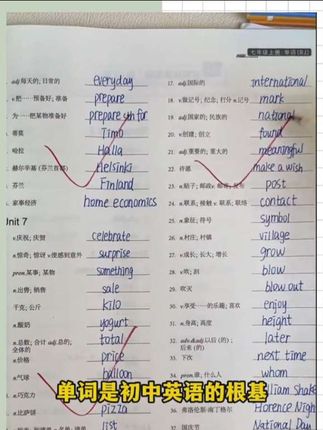 七年级上册·单词(RJ)
adj.每天的; 日常的 everyday
v.把……预备好; 准备 prepare
为……把某物准备好 prepare sth for
蒂莫 Timo
哈拉 Halla
赫尔辛基 (芬兰首都) Helsinki
芬兰 Finland
home economics
nit 7
v.庆祝; 庆贺 celebrate
n.惊奇; 惊讶 v.使感到意外 surprise
pron.某事; 某物 something
n.出售; 销售 sale
千克; 公斤 kilo
n.酸奶 yogurt
n.总数; 合计 adj.总的; total
全体的
n.价格 price
n.气球 balloon
n.巧克力
n.比萨饼 pizza
list
17. adj.国际的 international
18. v.做记号; 纪念; 打分 n.记号 mark
19. adj.国家的; 民族的 national
20. v.创建; 创立 found
21. adj.重要的; 重大的 meaningful
22. 许愿 make a wish
post
24. contact
25. n.象征; 符号 symbol
26. n.村庄; 村镇 village
27. v.成长; 长大; 增长 grow
28. v.吹; 刮 blow
29. 吹灭 blow out
30. enjoy
31. n.身高; 高度 height
32. adv.以后(的); later
后来(的)
33. 下次 next time
34. pron.谁, 什么人 whom
William Shake
36. 弗洛伦斯·南丁格尔 Florence Nigh
National Day
单词是初中英语的根基